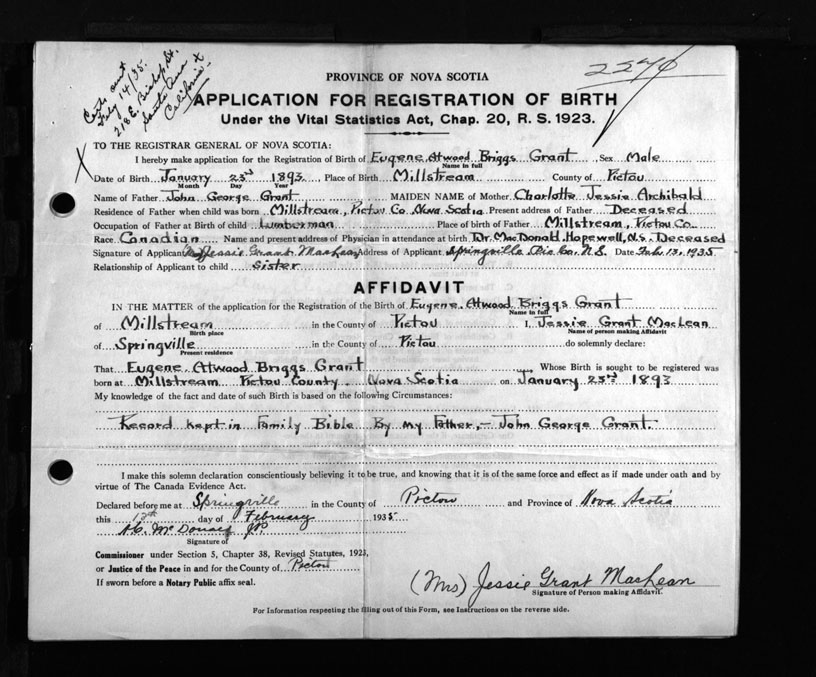 Certs sent
July 14/35.
218 E. Bishop St.
Santa Ana
California
2276
PROVINCE OF NOVA SCOTIA
APPLICATION FOR REGISTRATION OF BIRTH
Under the Vital Statistics Act, Chap. 20, R. S. 1923.
X
TO THE REGISTRAR GENERAL OF NOVA SCOTIA:
I hereby make application for the Registration of Birth of Eugene Attwood Briggs Grant Sex Male
Name in full
Date of Birth January 23rd 1893 Place of Birth Millstream County of Pictou
Month Day Year
Name of Father John George Grant MAIDEN NAME of Mother Charlotte Jessie Archibald
Residence of Father when child was born Millstream, Pictou Co. Nova Scotia Present address of Father Deceased
Occupation of Father at Birth of child Lumberman Place of birth of Father Millstream, Pictou Co.
Race Canadian Name and present address of Physician in attendance at birth Dr. MacDonald, Hopewell, N.S. Deceased
Signature of Applicant Jessie Grant MacLean Address of Applicant Springville Pic Co. N.S. Date Feb. 13, 1935
Relationship of Applicant to child Sister
AFFIDAVIT
IN THE MATTER of the application for the Registration of the Birth of Eugene Attwood Briggs Grant
Name in full
of Millstream in the County of Pictou I, Jessie Grant MacLean
Birth place Name of person making Affidavit
of Springville in the County of Pictou do solemnly declare:
Present residence
That Eugene Attwood Briggs Grant Whose Birth is sought to be registered was
born at Millstream Pictou County Nova Scotia on January 23rd 1893
My knowledge of the fact and date of such Birth is based on the following Circumstances:
Record kept in Family Bible By my Father, – John George Grant.
I make this solemn declaration conscientiously believing it to be true, and knowing that it is of the same force and effect as if made under oath and by
virtue of The Canada Evidence Act.
Declared before me at Springville in the County of Pictou and Province of Nova Scotia
this 12th day of February 1935
McDonald J.P.
Signature of
Commissioner under Section 5, Chapter 38, Revised Statutes, 1923,
or Justice of the Peace in and for the County of Pictou
If sworn before a Notary Public affix seal.
(Mrs) Jessie Grant MacLean
Signature of Person making Affidavit.
For Information respecting the filling out of this Form, see Instructions on the reverse side.